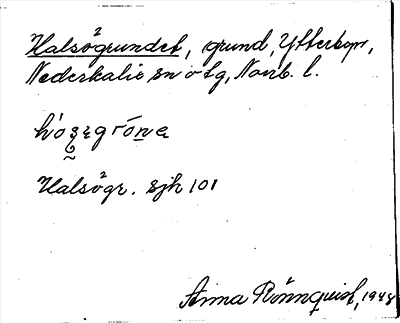 Halsögrundet, grund, Ytterbyn,
Nederkalix sn o tg, Norrb. l.
Halsögr. sjk 101
Anna Rönnquist, 1948